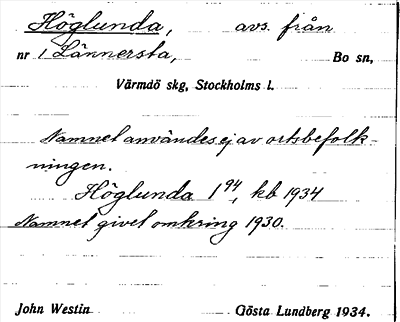 Höglunda, avs. från
nr 1 Lännersta, Bo sn,
Värmdö skg, Stockholms l.
Namnet användes ej av ortsbefolk-
ningen.
Höglunda 1⁹⁴, kb 1934
Namnet givet omkring 1930.
John Westin Gösta Lundberg 1934.